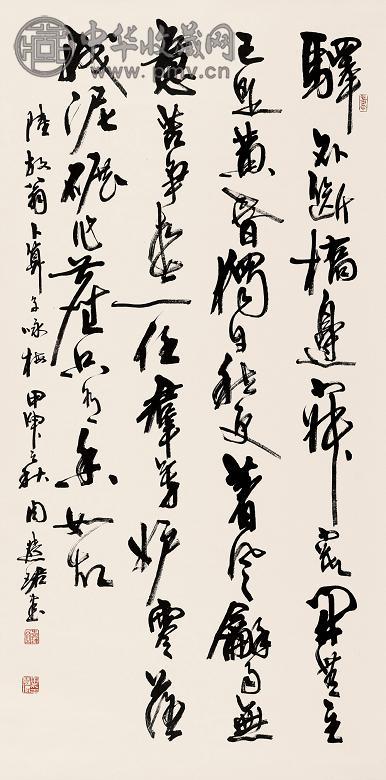 中华收藏网
www.pmv.cn
驛外斷橋邊寂寞開無主
已是黃昏獨自愁更著風龢雨無
意苦爭春一任羣芳妒零落
成泥碾作塵只有香如故
陸放翁卜算子咏梅甲申之秋周慧珺書